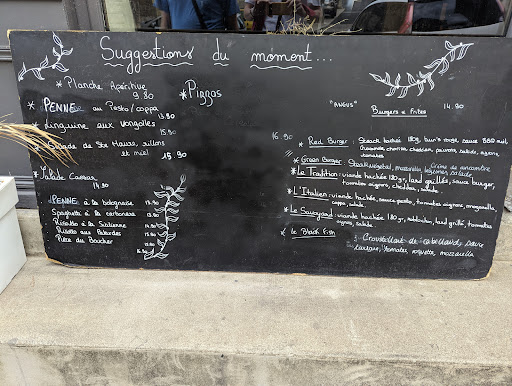 Suggestions du moment...
* Planche Apéritive
9.80
* PENNE au Pesto/coppa
13.90
* Linguine aux vongolles
15.90
* Salade de Ste Maure, rillons
et miel 15.90
* Salade Caesar
14.90
PENNE à la bolognaise 13.90
Spaghetti à la carbonara 13.90
Risotto à la Sicilienne
Risotto aux
Pièce du Boucher
* Pizzas
"ANGUS" Burgers & Frites 14.90
16.90 * Red Burger: Steack haché 180g, bun's rouge, sauce
cheddar, salade, oignons,
tomates
* Green Burger: Steak végétal, mozzarella,
légumes, salade
* Le Tradition: viande hachée 180gr, lard grillé, sauce burger,
tomates oignons, cheddar, salade
* L'Italien: viande hachée, sauce pesto, tomates oignons, mozzarella,
coppa, salade
* Le Savoyard: viande hachée 180gr, reblochon, lard grillé, tomates
oignons, salade
* Le Black Fish : Croustillant de cabillaud, sauce
tartare, tomates, roquette, mozzarella